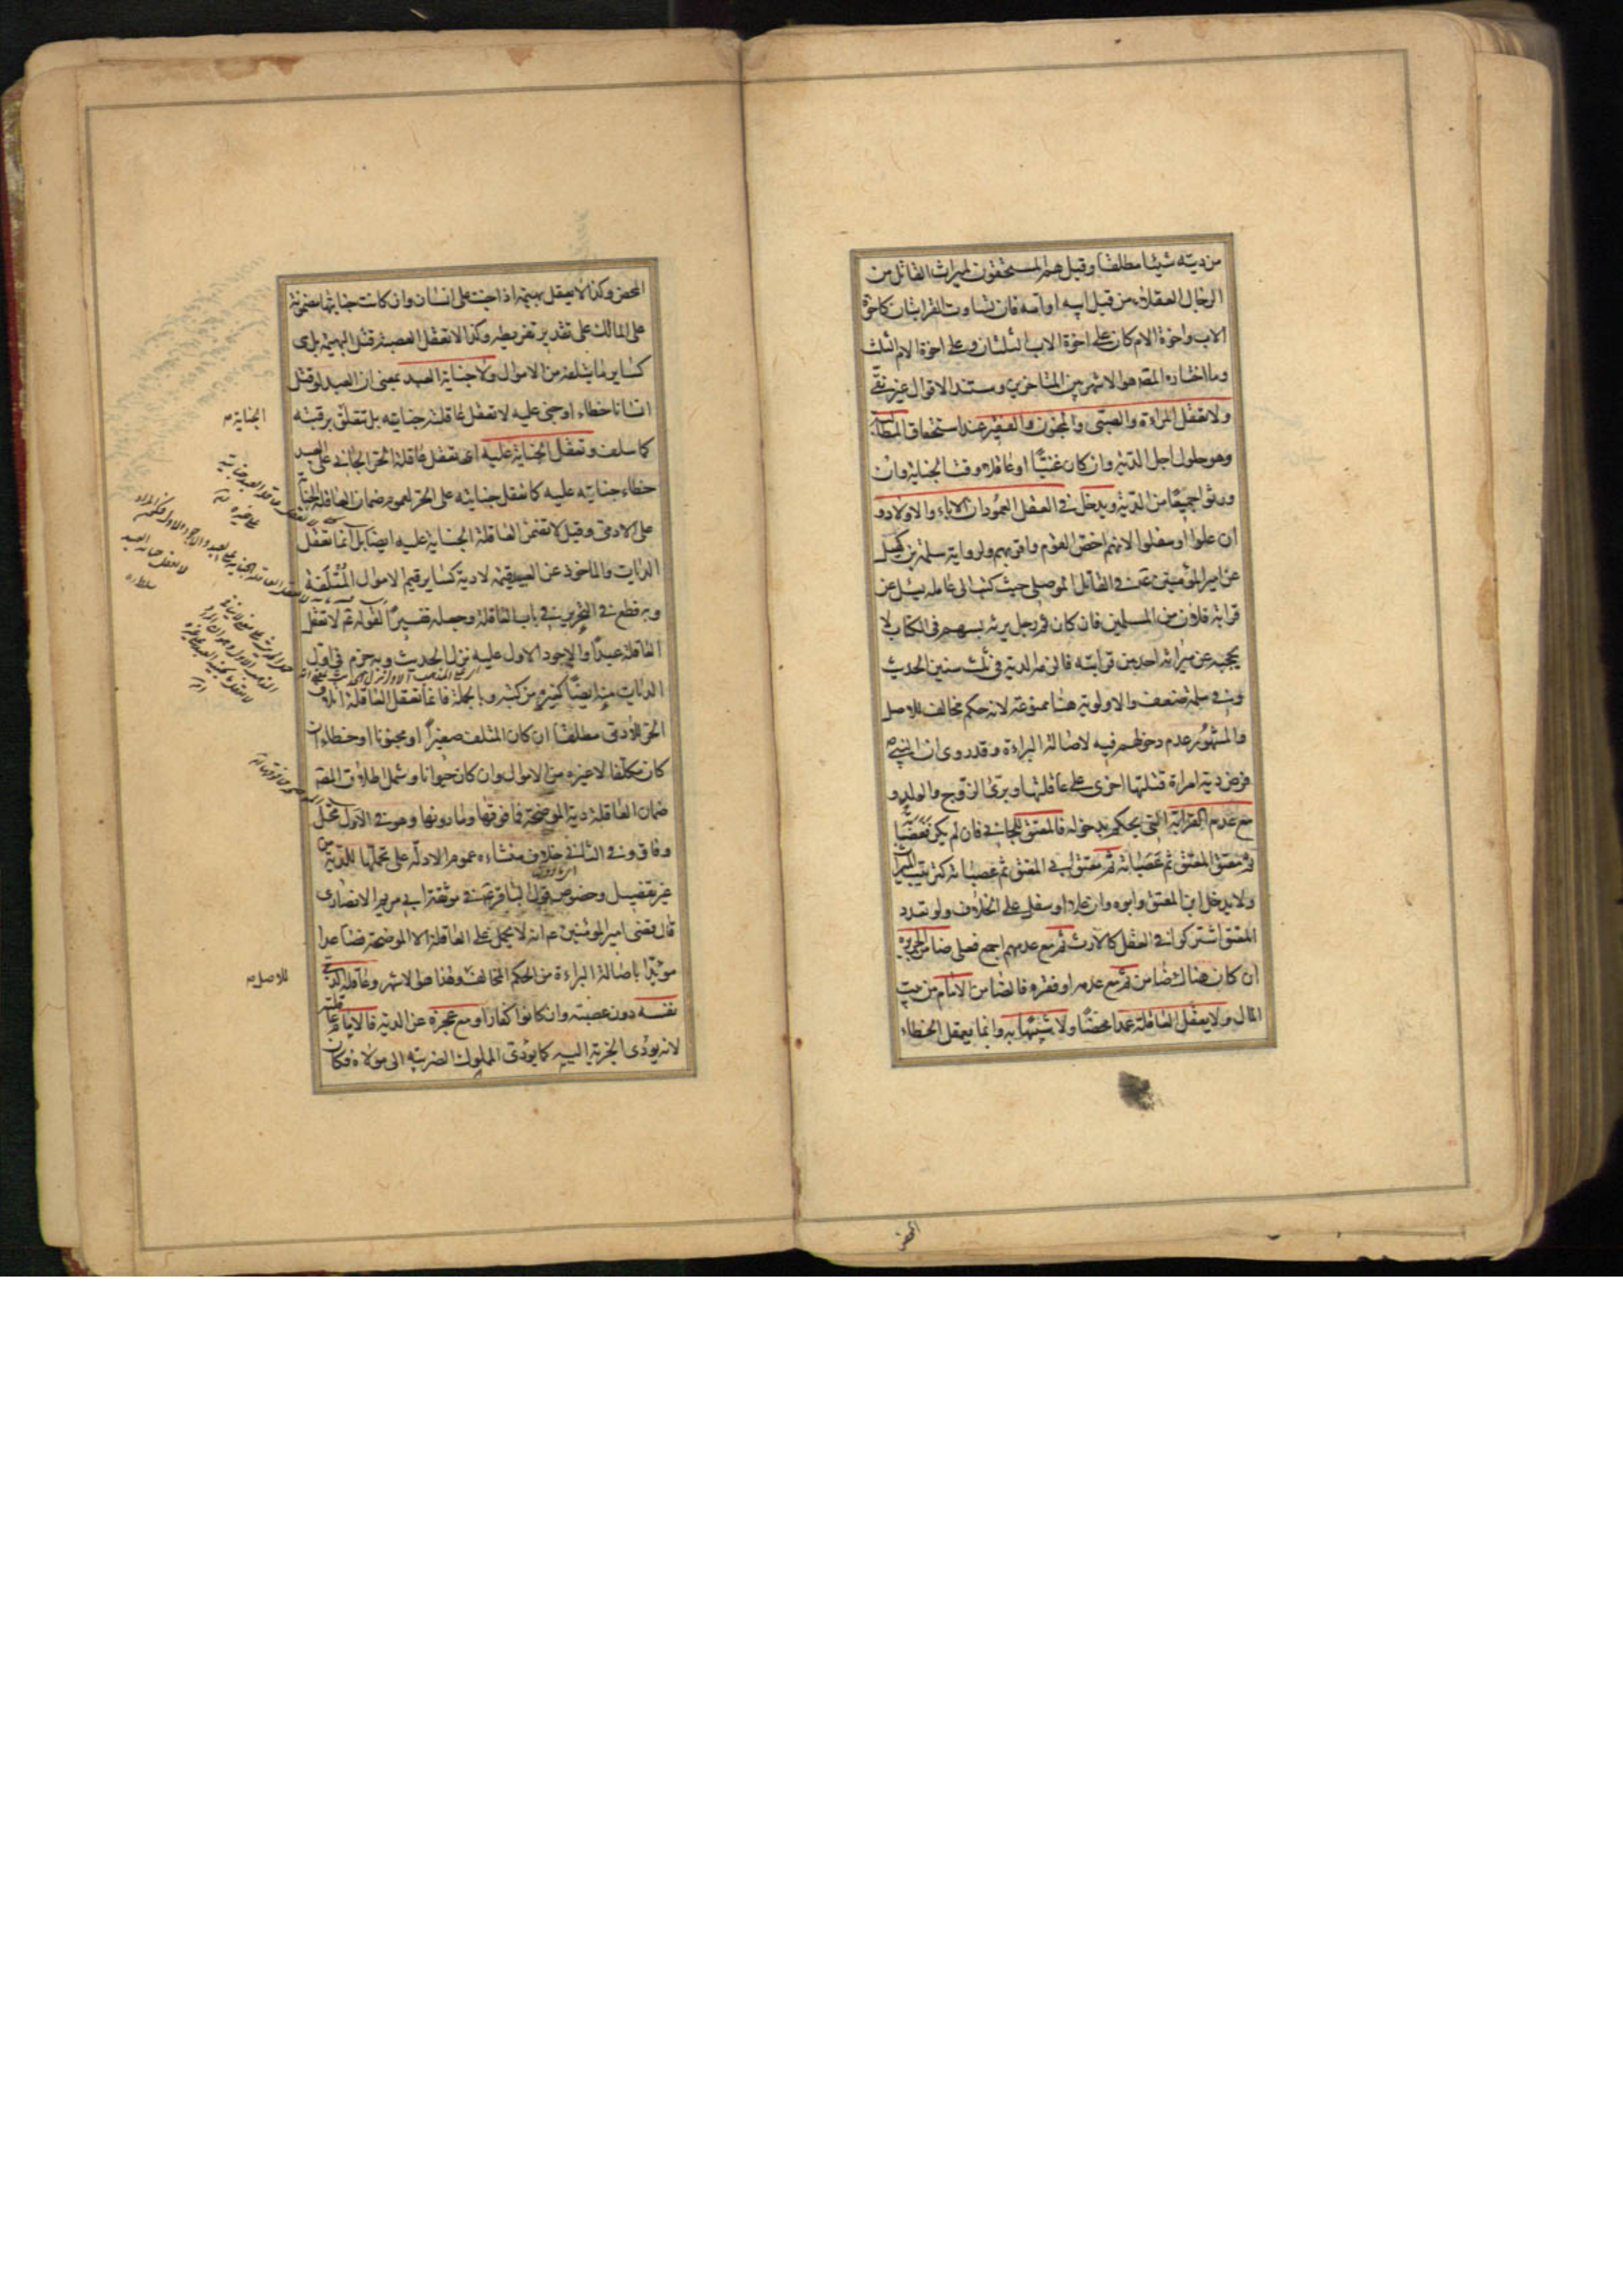 من ديته شيئا مطلقا وقيل هم المستحقون لميراث القاتل من
الرجال العقلاء من قبل ابيه او امه فان تساوت القرابتان كاخوة
الاب واخوة الام كان على اخوة الاب الثلثان وعلى اخوة الام الثلث
وما اختاره المصـ هو الاشهر بين المتاخرين ومستند الاقوال غير نقي
ولا تعقل المراة والصبي والمجنون والفقير عند استحقاق المطالبة
وهو حلول اجل الدية وان كان غنيا او عاقلا وقت الجناية وان
ورثوا جميعا من الدية ويدخل في العقل العمودان الاباء والاولاد و
ان علوا او سفلوا لانهم اخص القوم واقربهم ولرواية سلمة بن كهيل
عن امير المؤمنين عـ في القاتل الموصلي حيث كتب الى عامله يسئل عن
قرابة فلان من المسلمين فان كان ثم رجل يرثه بسهم في الكتاب لا
يحجبه عن ميراثه احد من قرابته فالزمه الدية في ثلث سنين الحديث
وفي سلمة ضعف والاولوية هنا ممنوعة لانه حكم مخالف للاصل
والمشهور عدم دخولهم فيه لاصالة البراءة وقد روى ان النبي ص
فرض دية امراة قتلتها اخرى على عاقلتها وبرئ الزوج والولد و
مع عدم القرابة التي يحكم بدخوله فالمعتق للجاني فان لم يكن فعصباته
ثم معتق المعتق ثم عصباته ثم معتق ابي المعتق ثم عصباته كترتيب الميراث
ولا يدخل ابن المعتق وابوه وان علا او سفل على الخلاف ولو تعدد
المعتق اشتركوا في العقل كالارث ثم مع عدمهم اجمع فعلى ضامن الجريرة
ان كان هناك ضامن ثم مع عدمه او فقره فالضامن الامام من بيت
المال ولا يعقل العاقلة عمدا محضا ولا شبيها به وانما يعقل الخطاء
المحض
المحض وكذا لا يعقل بهيمة اذا جنت على انسان وان كانت جنايتها مضمونة
على المالك على تقدير تفريطه وكذا لا تعقل العصبة قتل البهيمة بل هي
كساير ما يتلفه من الاموال ولا جناية العبد بمعنى ان العبد لو قتل
انسانا خطاء او جنى عليه لا تعقل عاقلته جنايته بل تتعلق برقبته
كما سلف وتعقل الجناية عليه اي تعقل عاقلة الحر الجاني على العبد
خطاء جنايته عليه كما تعقل جنايته على الحر لعموم ضمان العاقلة الجناية
على الادمي وقيل لا تضمن العاقلة الجناية عليه ايضا بل انما تعقل
الديات والماخوذ عن العبد قيمة لا دية كساير قيم الاموال المتلفة
وبه قطع في التحرير في باب العاقلة وجعله تفسيرا لقوله عـ لا تعقل
العاقلة عبدا والاجود الاول عليه نزل الحديث وبه جزم في اول
الديات منه ايضا كغيره من كتبه وبالجملة فانما تعقل العاقلة اتلاف
الحر للادمي مطلقا ان كان المتلف صغيرا او مجنونا او خطاء ان
كان مكلفا لا غيره من الاموال وان كان حيوانا وشمل اطلاق المصـ
ضمان العاقلة دية الموضحة فما فوقها وما دونها وهو في الاول محل
وفاق وفي الثاني خلاف منشاءه عموم الادلة على تحملها للدية من
غير تفصيل وخصوص قول الباقر عـ في موثقة ابي مريم الانصاري
قال قضى امير المؤمنين عـ انه لا يحمل على العاقلة الا الموضحة فصاعدا
مؤيدا باصالة البراءة من الحكم المخالف وهذا هو الاشهر وعاقلة الذمي
نفسه دون عصبته وان كانوا كفارا ومع عجزه عن الدية فالامام عاقلته
لانه يؤدي الجزية اليه كما يؤدي المملوك الضريبة الى مولاه فكان
الجناية صـ
للاصل صـ